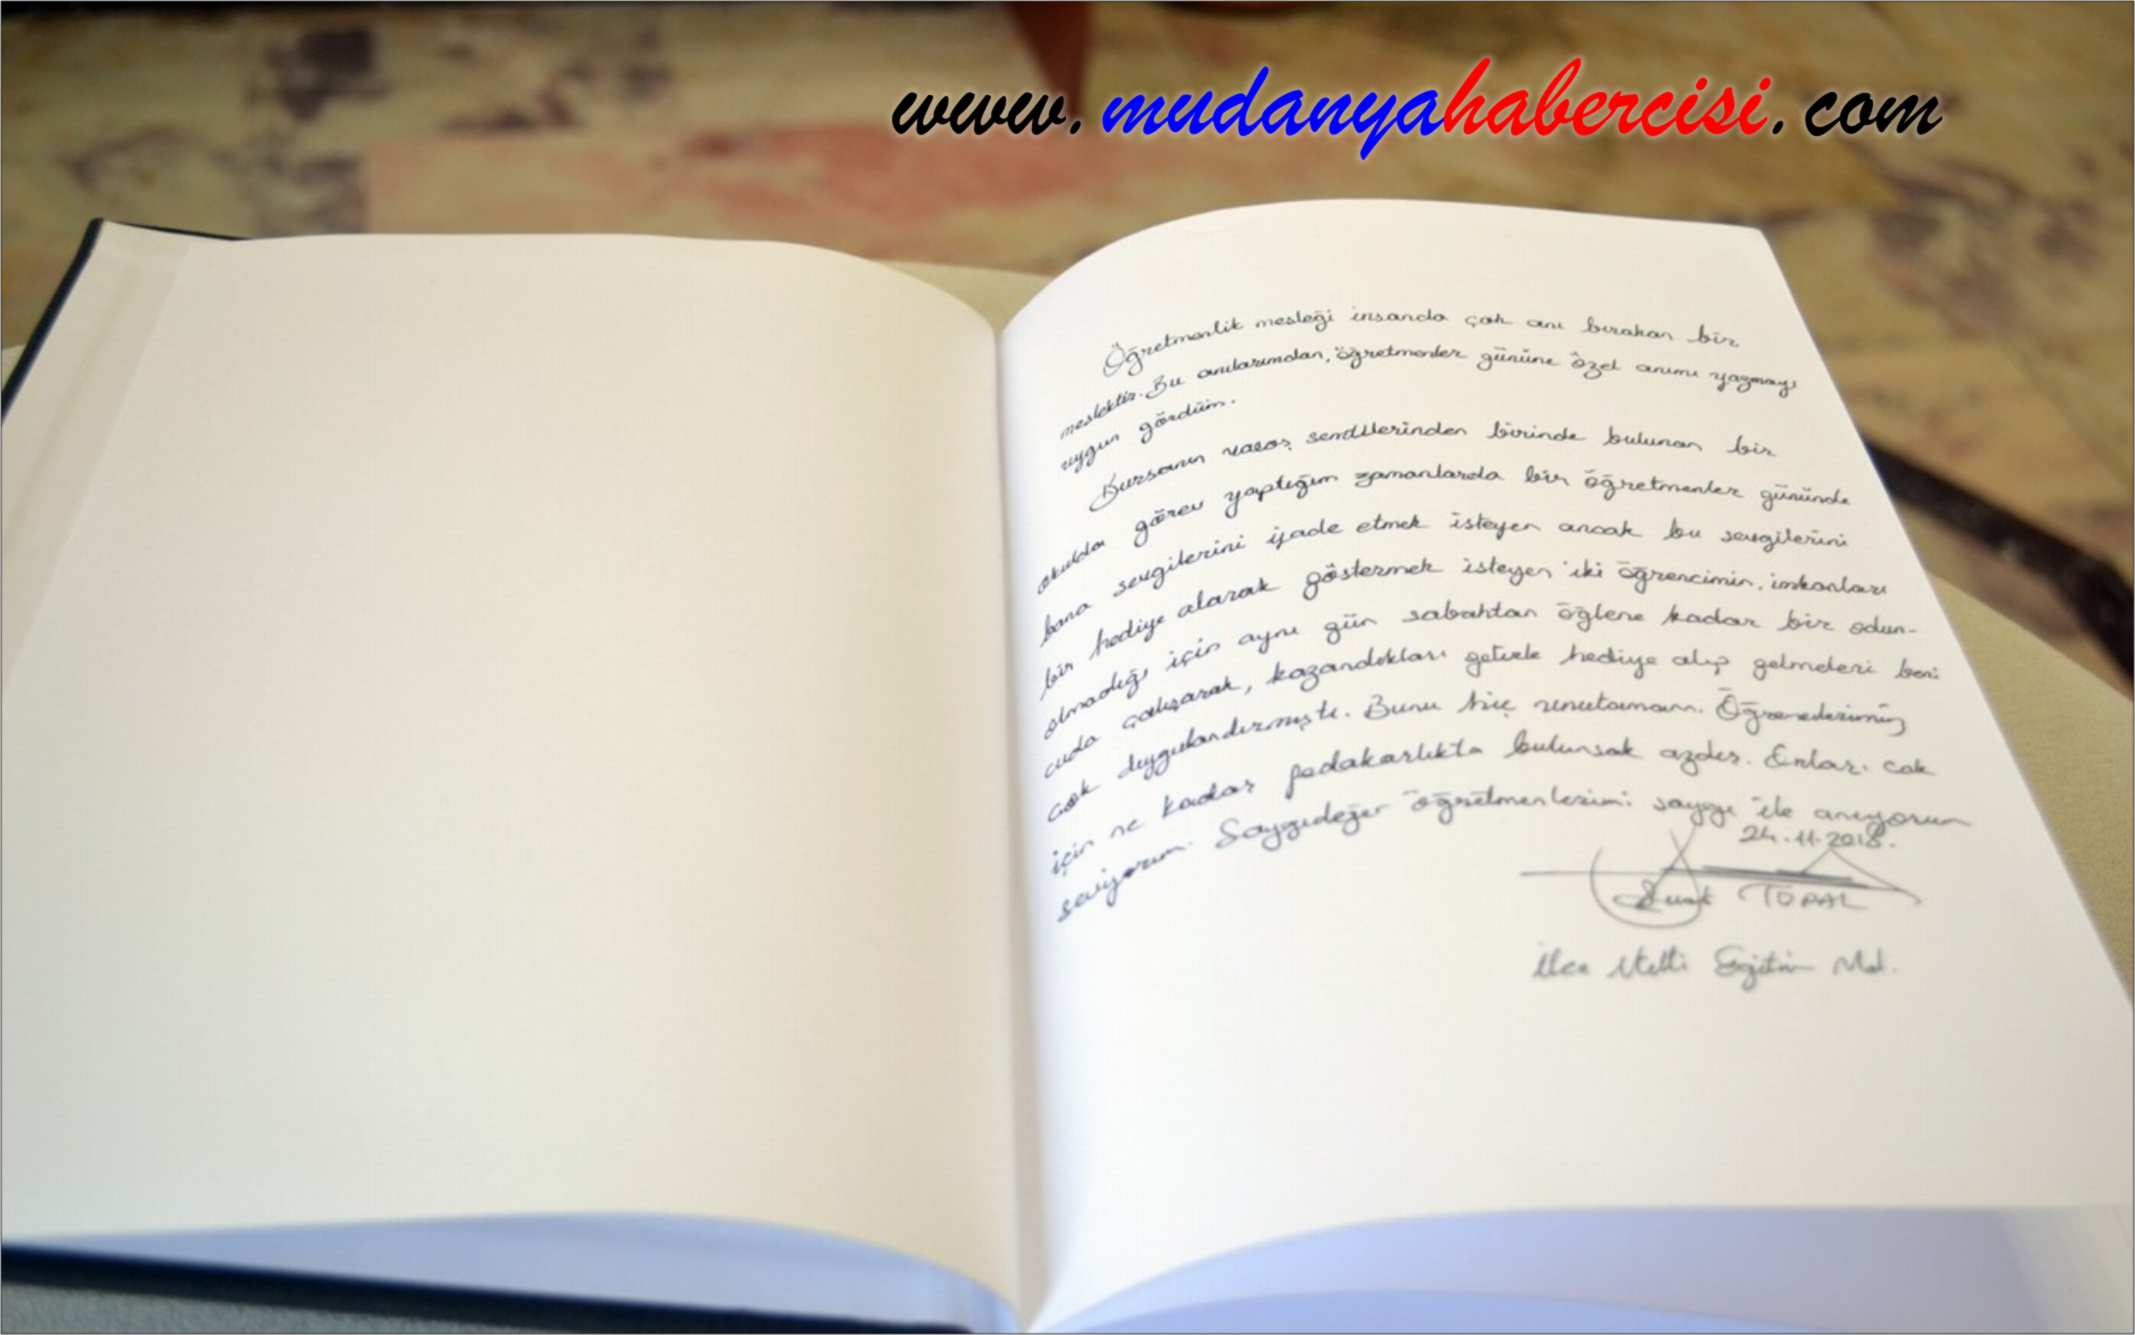 www.mudanyahabercisi.com
Öğretmenlik mesleği insanda çok anı bırakan bir
meslektir. Bu anılarımdan, öğretmenler gününe özel anımı yazmayı
uygun gördüm.
Bursanın varoş semtlerinden birinde bulunan bir
okulda görev yaptığım zamanlarda bir öğretmenler gününde
bana sevgilerini ifade etmek isteyen ancak bu sevgilerini
bir hediye alarak göstermek isteyen iki öğrencimin, imkanları
olmadığı için aynı gün sabahtan öğlene kadar bir odun-
cuda çalışarak, kazandıkları hediye alıp gelmeleri beni
çok duygulandırmıştı. Bunu hiç unutamam. Öğrencilerimiz
için ne kadar fedakarlıkta bulunsak azdır. Onları çok
seviyorum. Saygıdeğer öğretmenlerimi saygı ile anıyorum
24.11.2018.
TOPAL
İlçe Milli Eğitim Md.